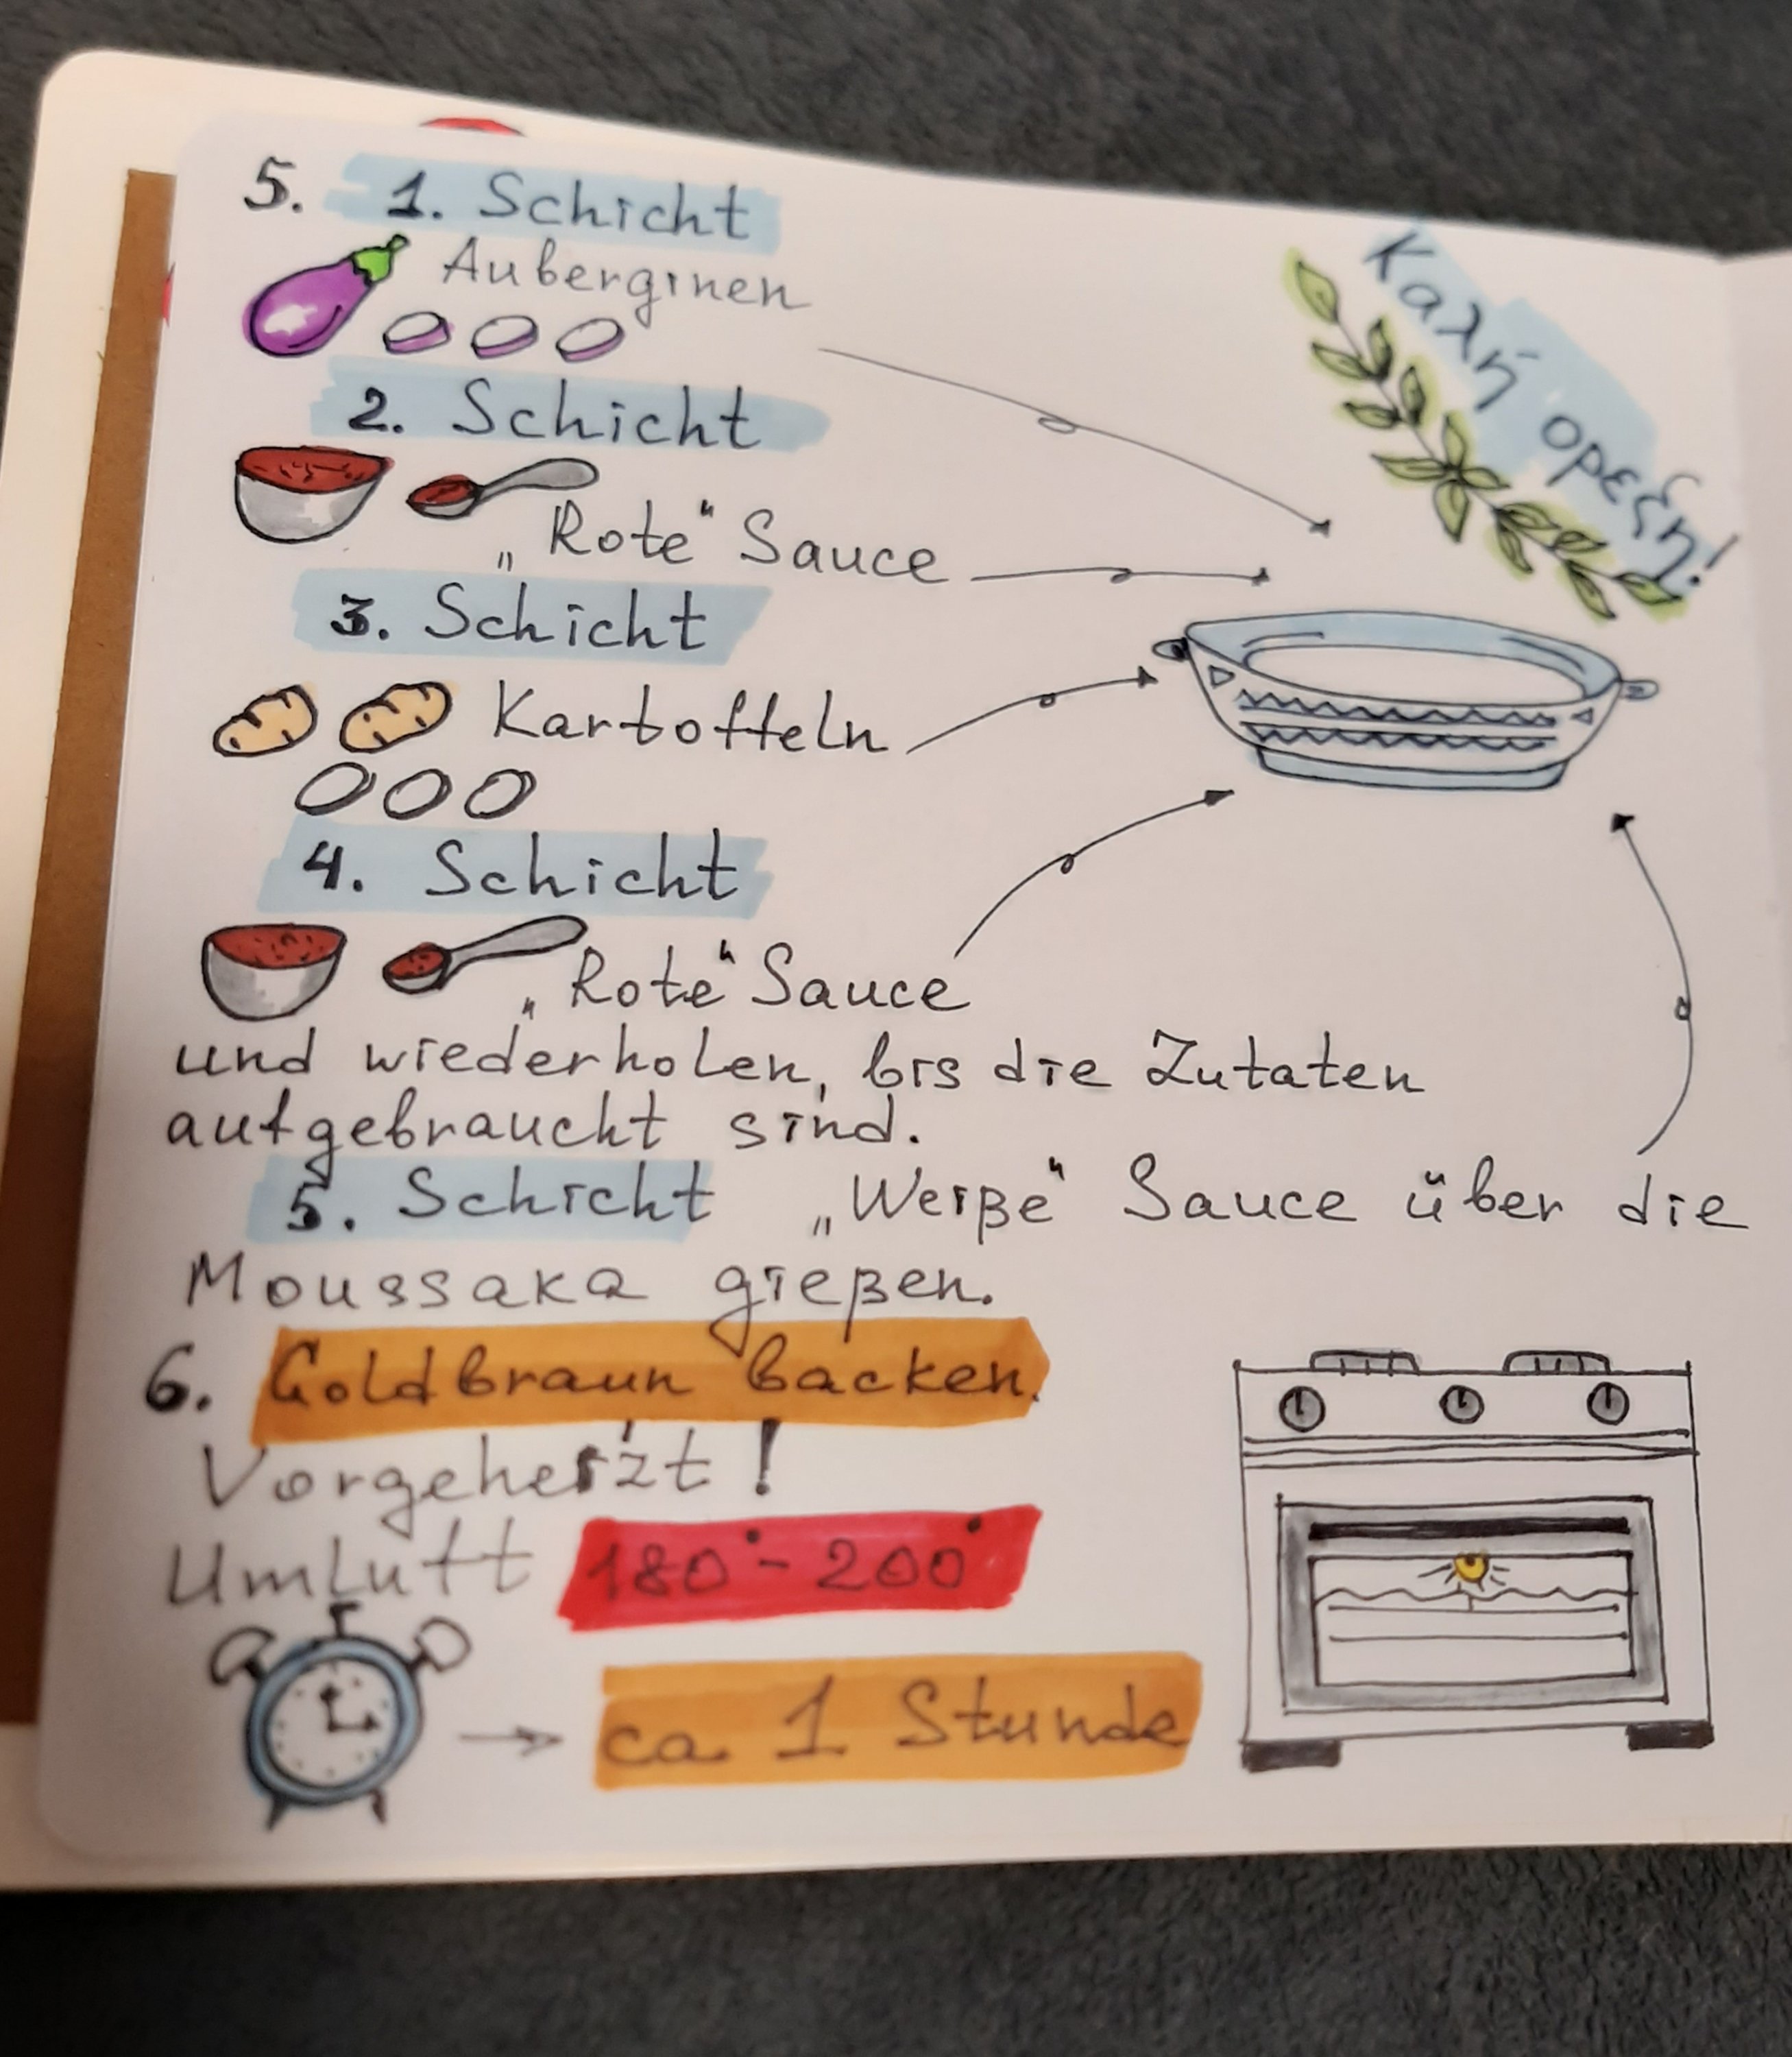 5. 1. Schicht
Auberginen
Καλή όρεξη!
2. Schicht
„Rote" Sauce
3. Schicht
Kartoffeln
4. Schicht
„Rote" Sauce
und wiederholen, bis die Zutaten
aufgebraucht sind.
5. Schicht „Weiße" Sauce über die
Moussaka gießen.
6. Goldbraun backen.
Vorgeheizt!
Umluft 180°-200°
ca 1 Stunde